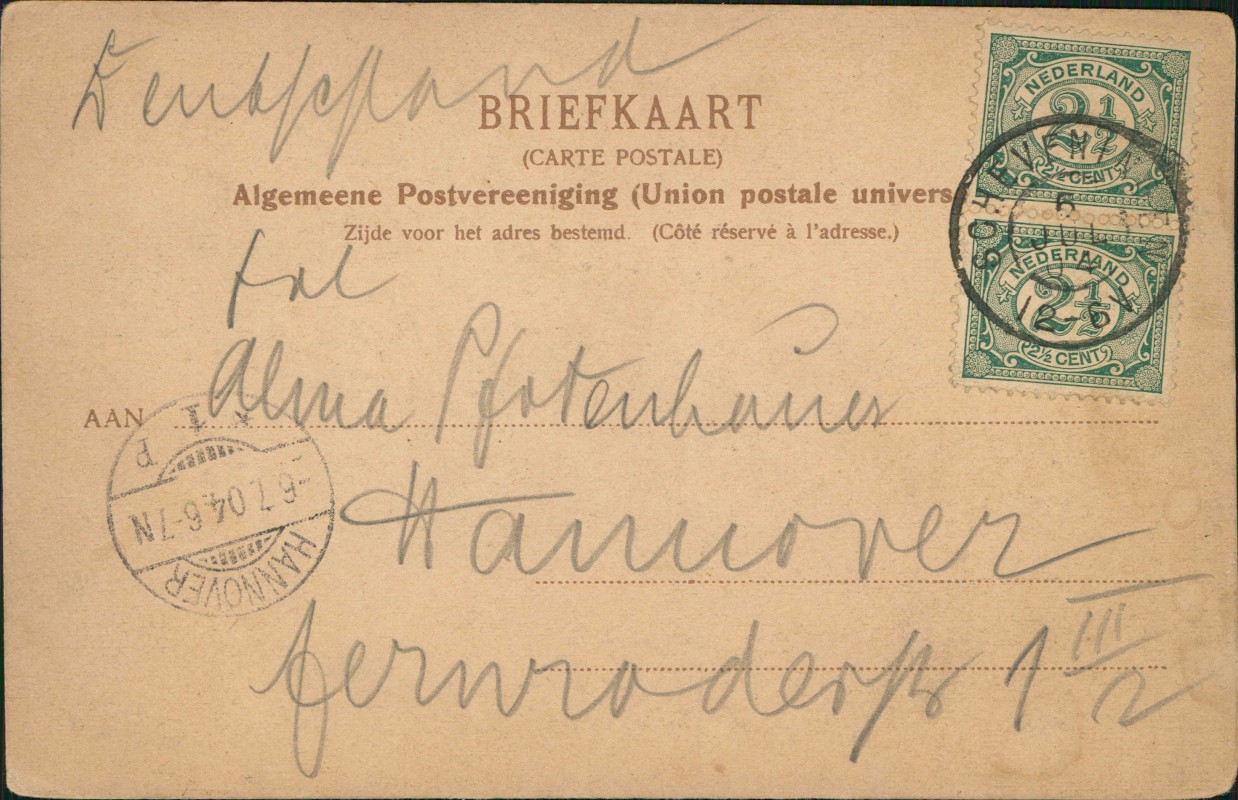 Deutschland
BRIEFKAART
(CARTE POSTALE)
Algemeene Postvereeniging (Union postale univers
Zijde voor het adres bestemd. (Côté réservé à l'adresse.)
NEDERLAND
2 1/2
2½ CENT
6 JUL
12-6V
NEDERLAND
2 1/2
2½ CENT
Frl
AAN Alma Pfotenhauer
Hannover
1 III/2
HANNOVER
-6.7.04.6-7N
* 1 P